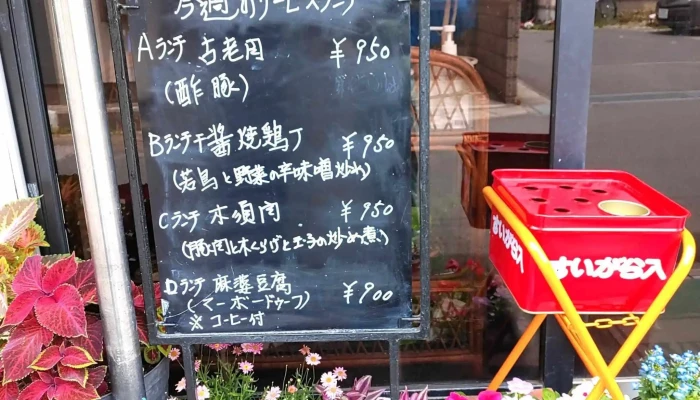 今週のサービスランチ
Aランチ 古老肉 ￥950
(酢豚)
Bランチ 干醤焼鶏丁 ￥950
(若鳥と野菜の辛味噌炒め)
Cランチ 木須肉 ￥950
(豚肉と木くりげと玉子の炒め煮)
Dランチ 麻婆豆腐 ￥900
(マーボードゥーフ)
※コーヒー付
すいがら入
すいがら入